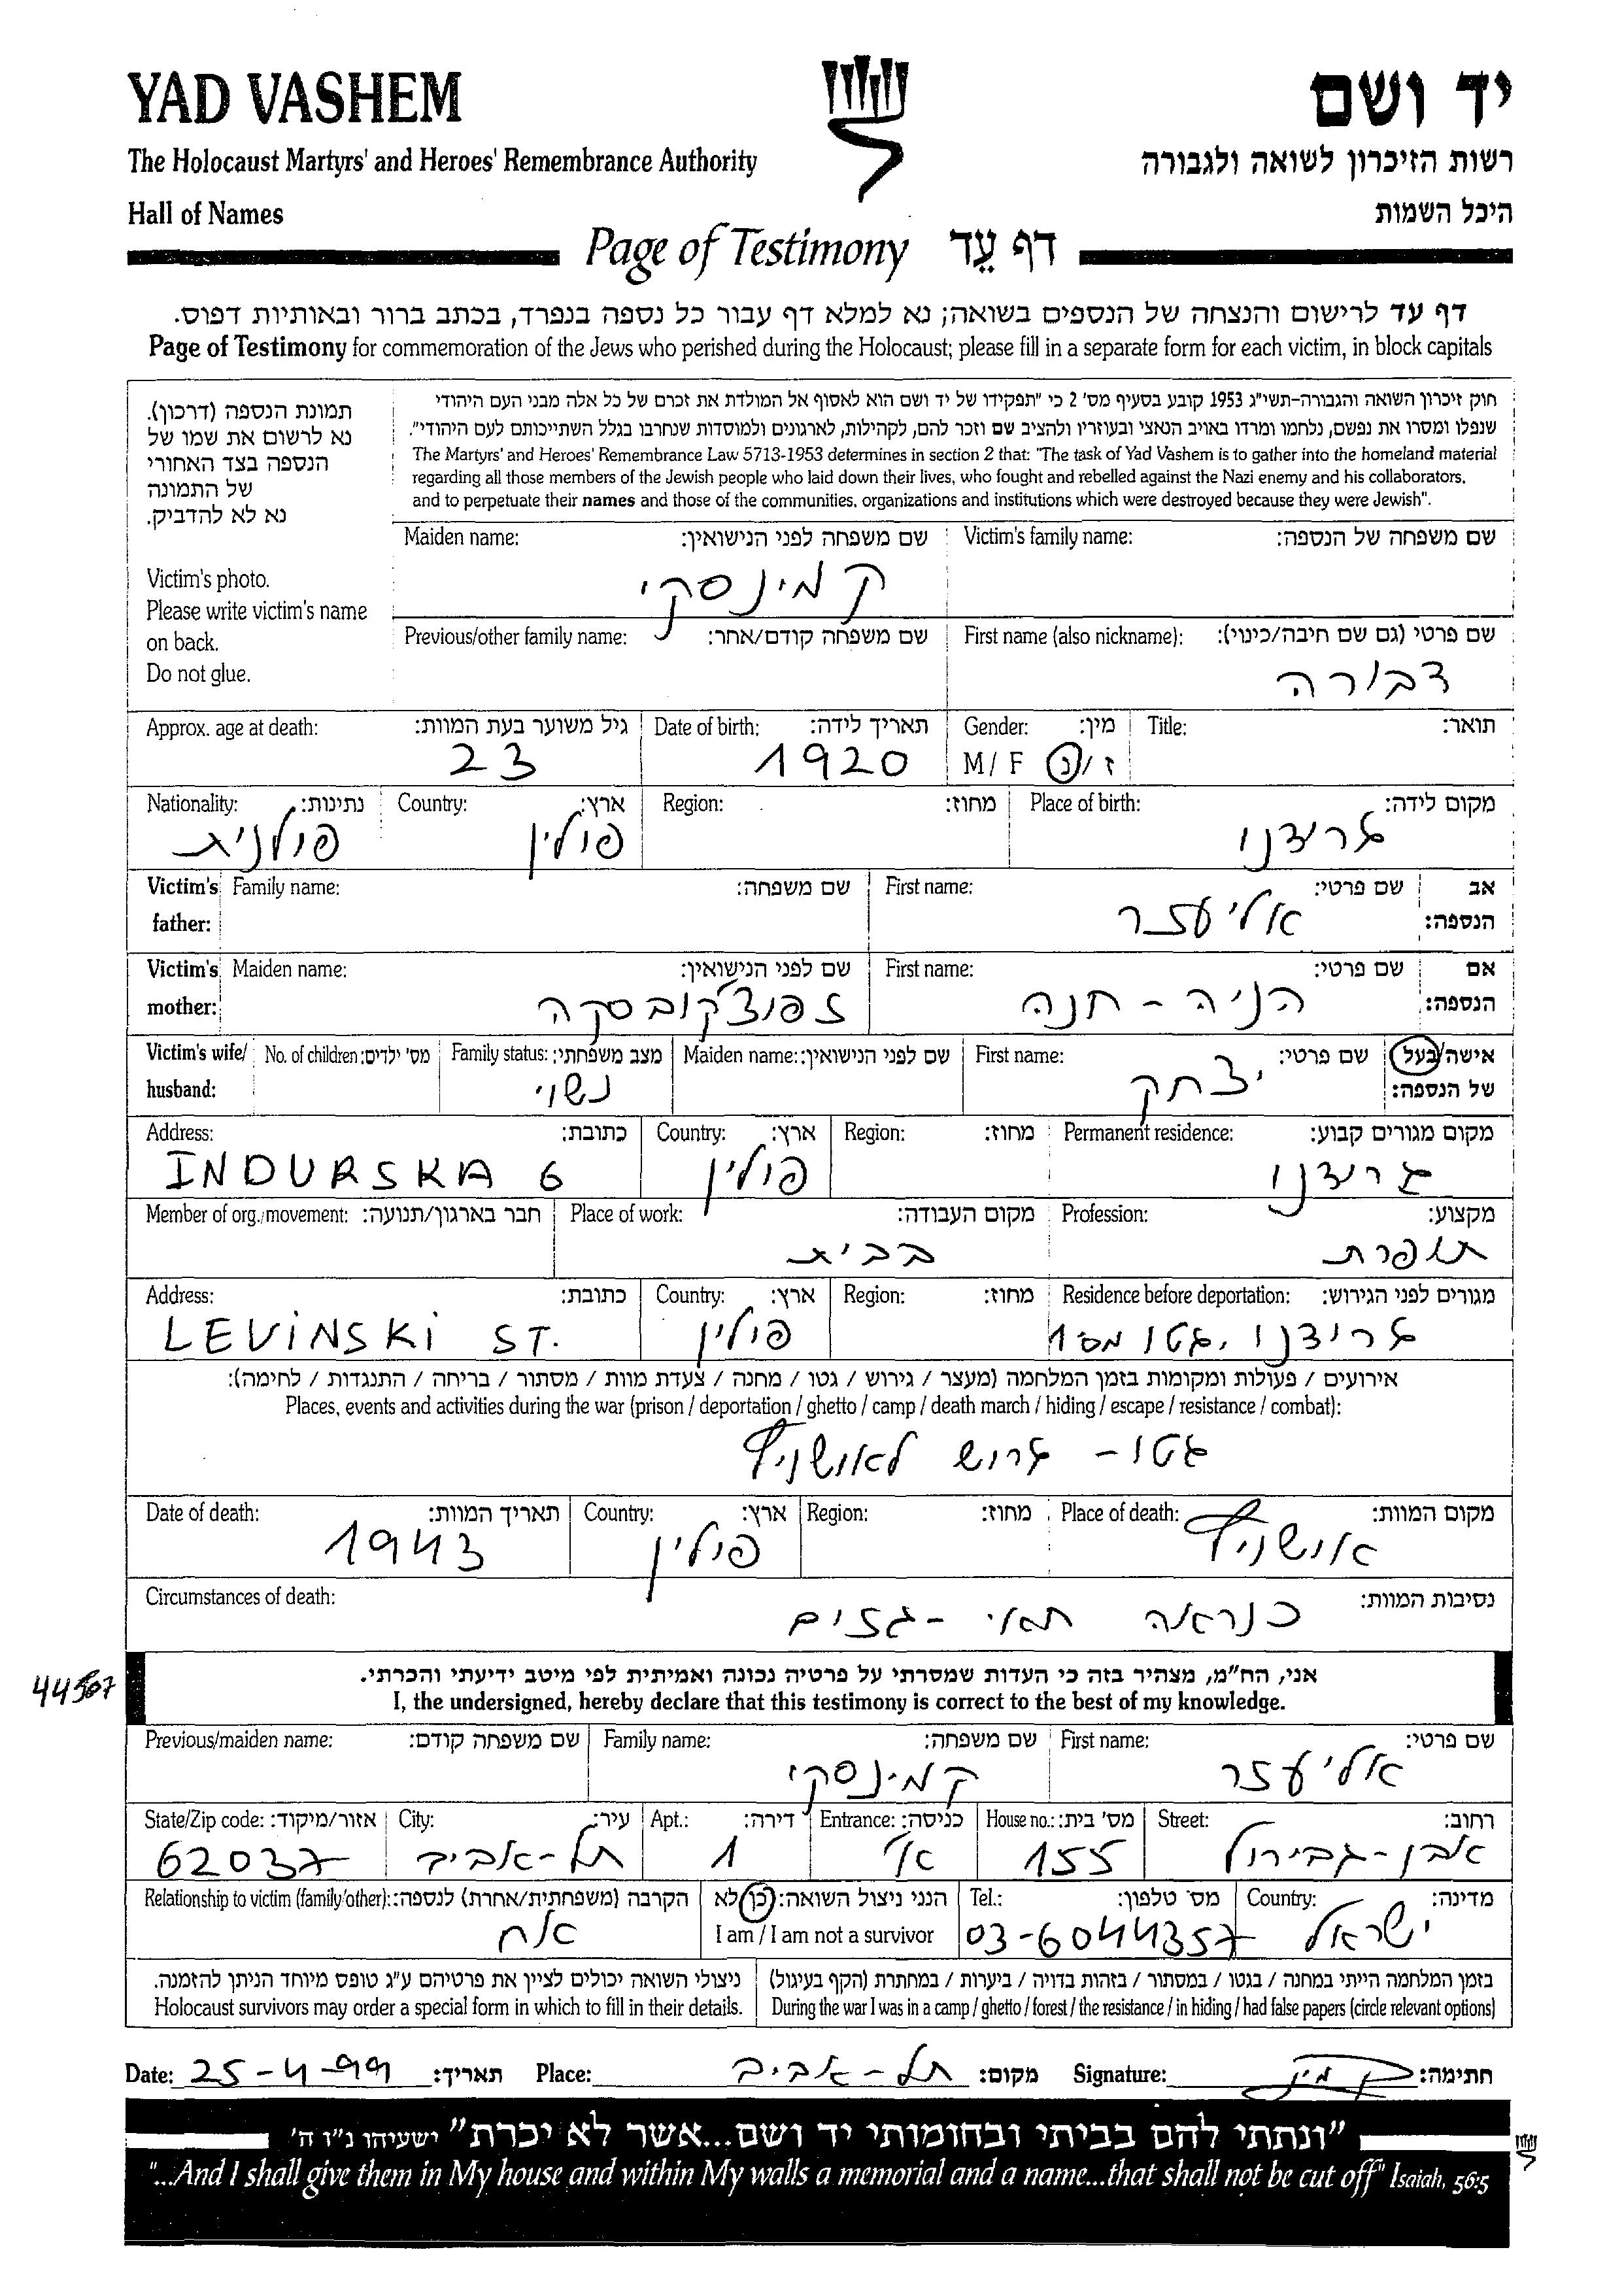 YAD VASHEM
יד ושם
The Holocaust Martyrs' and Heroes' Remembrance Authority
רשות הזיכרון לשואה ולגבורה
Hall of Names
היכל השמות
Page of Testimony דף עֵד
דף עד לרישום והנצחה של הנספים בשואה; נא למלא דף עבור כל נספה בנפרד, בכתב ברור ובאותיות דפוס.
Page of Testimony for commemoration of the Jews who perished during the Holocaust; please fill in a separate form for each victim, in block capitals
תמונת הנספה (דרכון).
נא לרשום את שמו של
הנספה בצד האחורי
של התמונה
נא לא להדביק.
Victim's photo.
Please write victim's name
on back.
Do not glue.
חוק זיכרון השואה והגבורה-תשי"ג 1953 קובע בסעיף מס' 2 כי "תפקידו של יד ושם הוא לאסוף אל המולדת את זכרם של כל אלה מבני העם היהודי
שנפלו ומסרו את נפשם, נלחמו ומרדו באויב הנאצי ובעוזריו ולהציב שם וזכר להם, לקהילות, לארגונים ולמוסדות שנחרבו בגלל השתייכותם לעם היהודי".
The Martyrs' and Heroes' Remembrance Law 5713-1953 determines in section 2 that: "The task of Yad Vashem is to gather into the homeland material
regarding all those members of the Jewish people who laid down their lives, who fought and rebelled against the Nazi enemy and his collaborators,
and to perpetuate their names and those of the communities, organizations and institutions which were destroyed because they were Jewish".
שם משפחה של הנספה: Victim's family name:
שם משפחה לפני הנישואין: Maiden name:
קמינסקי
שם פרטי (גם שם חיבה/כינוי): First name (also nickname):
דבורה
שם משפחה קודם/אחר: Previous/other family name:
תואר: Title:
מין: Gender:
ז/נ M/F
תאריך לידה: Date of birth:
1920
גיל משוער בעת המוות: Approx. age at death:
23
מקום לידה: Place of birth:
גרודנו
מחוז: Region:
ארץ: Country:
פולין
נתינות: Nationality:
פולנית
אב הנספה: Victim's father:
שם פרטי: First name:
אליעזר
שם משפחה: Family name:
אם הנספה: Victim's mother:
שם פרטי: First name:
הניה - חנה
שם לפני הנישואין: Maiden name:
זפוצ'קובסקה
אישה/בעל של הנספה: Victim's wife/ husband:
שם פרטי: First name:
יצחק
שם לפני הנישואין: Maiden name:
מצב משפחתי: Family status:
נשוי
מס' ילדים: No. of children:
מקום מגורים קבוע: Permanent residence:
גרודנו
מחוז: Region:
ארץ: Country:
פולין
כתובת: Address:
INDURSKA 6
מקצוע: Profession:
תופרת
מקום העבודה: Place of work:
בבית
חבר בארגון/תנועה: Member of org./movement:
מגורים לפני הגירוש: Residence before deportation:
גרודנו, גטו מס 1
מחוז: Region:
ארץ: Country:
פולין
כתובת: Address:
LEVINSKI ST.
אירועים / פעולות ומקומות בזמן המלחמה (מעצר / גירוש / גטו / מחנה / צעדת מוות / מסתור / בריחה / התנגדות / לחימה):
Places, events and activities during the war (prison / deportation / ghetto / camp / death march / hiding / escape / resistance / combat):
גטו - גרוש לאושויץ
מקום המוות: Place of death:
אושויץ
מחוז: Region:
ארץ: Country:
פולין
תאריך המוות: Date of death:
1943
נסיבות המוות: Circumstances of death:
כנראה תאי - גזים
44507
אני, הח"מ, מצהיר בזה כי העדות שמסרתי על פרטיה נכונה ואמיתית לפי מיטב ידיעתי והכרתי.
I, the undersigned, hereby declare that this testimony is correct to the best of my knowledge.
שם פרטי: First name:
אליעזר
שם משפחה: Family name:
קמינסקי
שם משפחה קודם: Previous/maiden name:
רחוב: Street:
אבן-גבירול
מס' בית: House no.:
155
כניסה: Entrance:
א'
דירה: Apt.:
1
עיר: City:
תל-אביב
אזור/מיקוד: State/Zip code:
62037
מדינה: Country:
ישראל
מס' טלפון: Tel.:
03-6044357
הנני ניצול השואה: כן לא
I am / I am not a survivor
הקרבה (משפחתית/אחרת) לנספה: Relationship to victim (family/other):
אח
בזמן המלחמה הייתי במחנה / בגטו / במסתור / בזהות בדויה / ביערות / במחתרת (הקף בעיגול)
During the war I was in a camp / ghetto / forest / the resistance / in hiding / had false papers (circle relevant options)
ניצולי השואה יכולים לציין את פרטיהם ע"ג טופס מיוחד הניתן להזמנה.
Holocaust survivors may order a special form in which to fill in their details.
Date: 25-4-99 תאריך: Place: תל-אביב מקום: Signature: חתימה:
"ונתתי להם בביתי ובחומותי יד ושם...אשר לא יכרת" ישעיהו נ"ו ה'
"...And I shall give them in My house and within My walls a memorial and a name...that shall not be cut off" Isaiah, 56:5